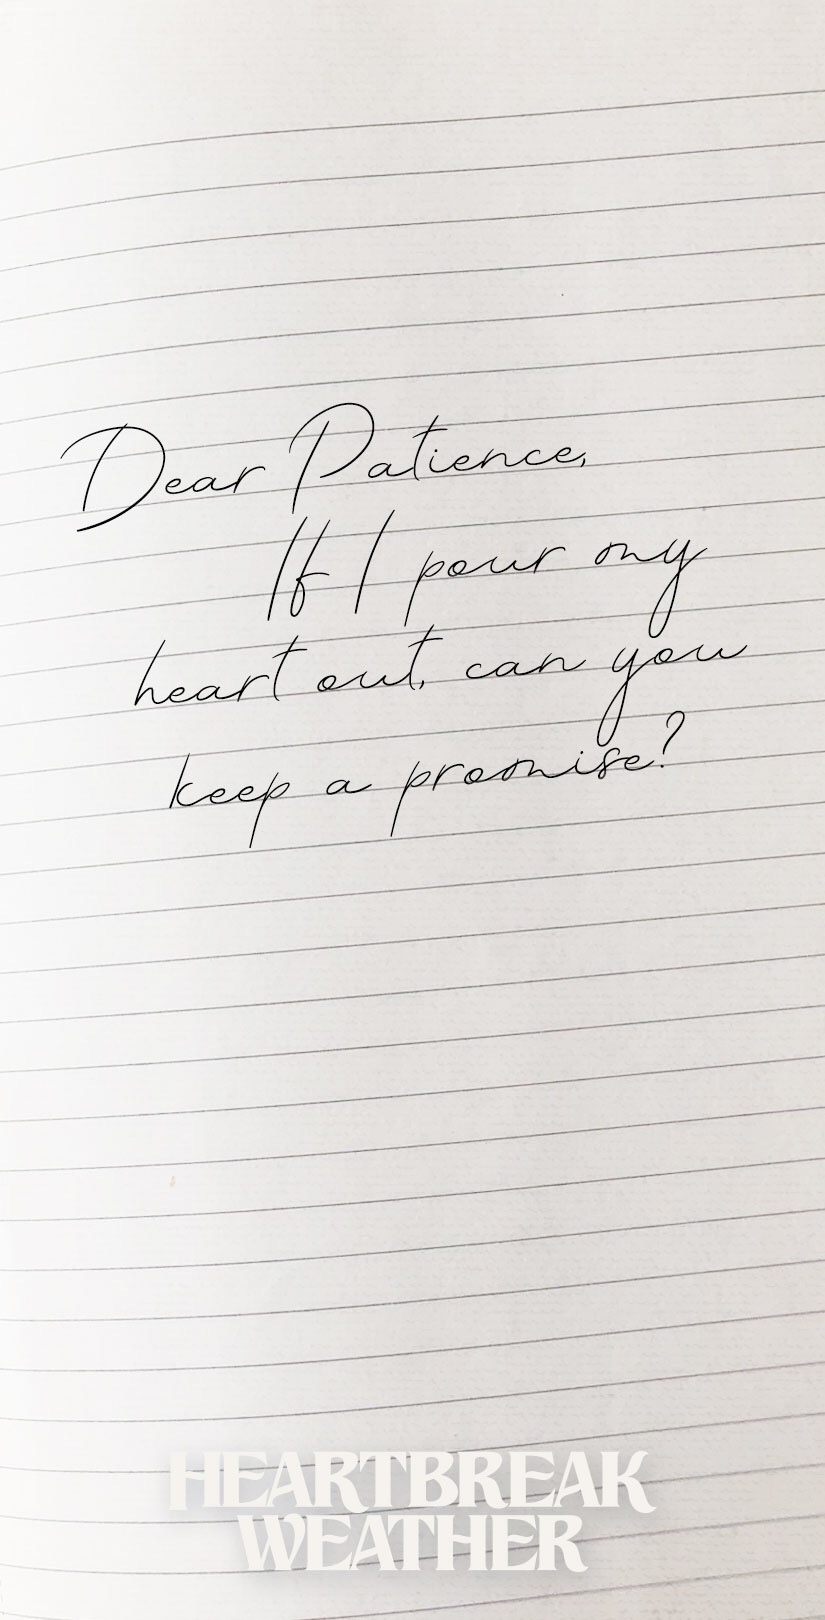 Dear Patience,
If I pour my
heart out, can you
keep a promise?
HEARTBREAK
WEATHER